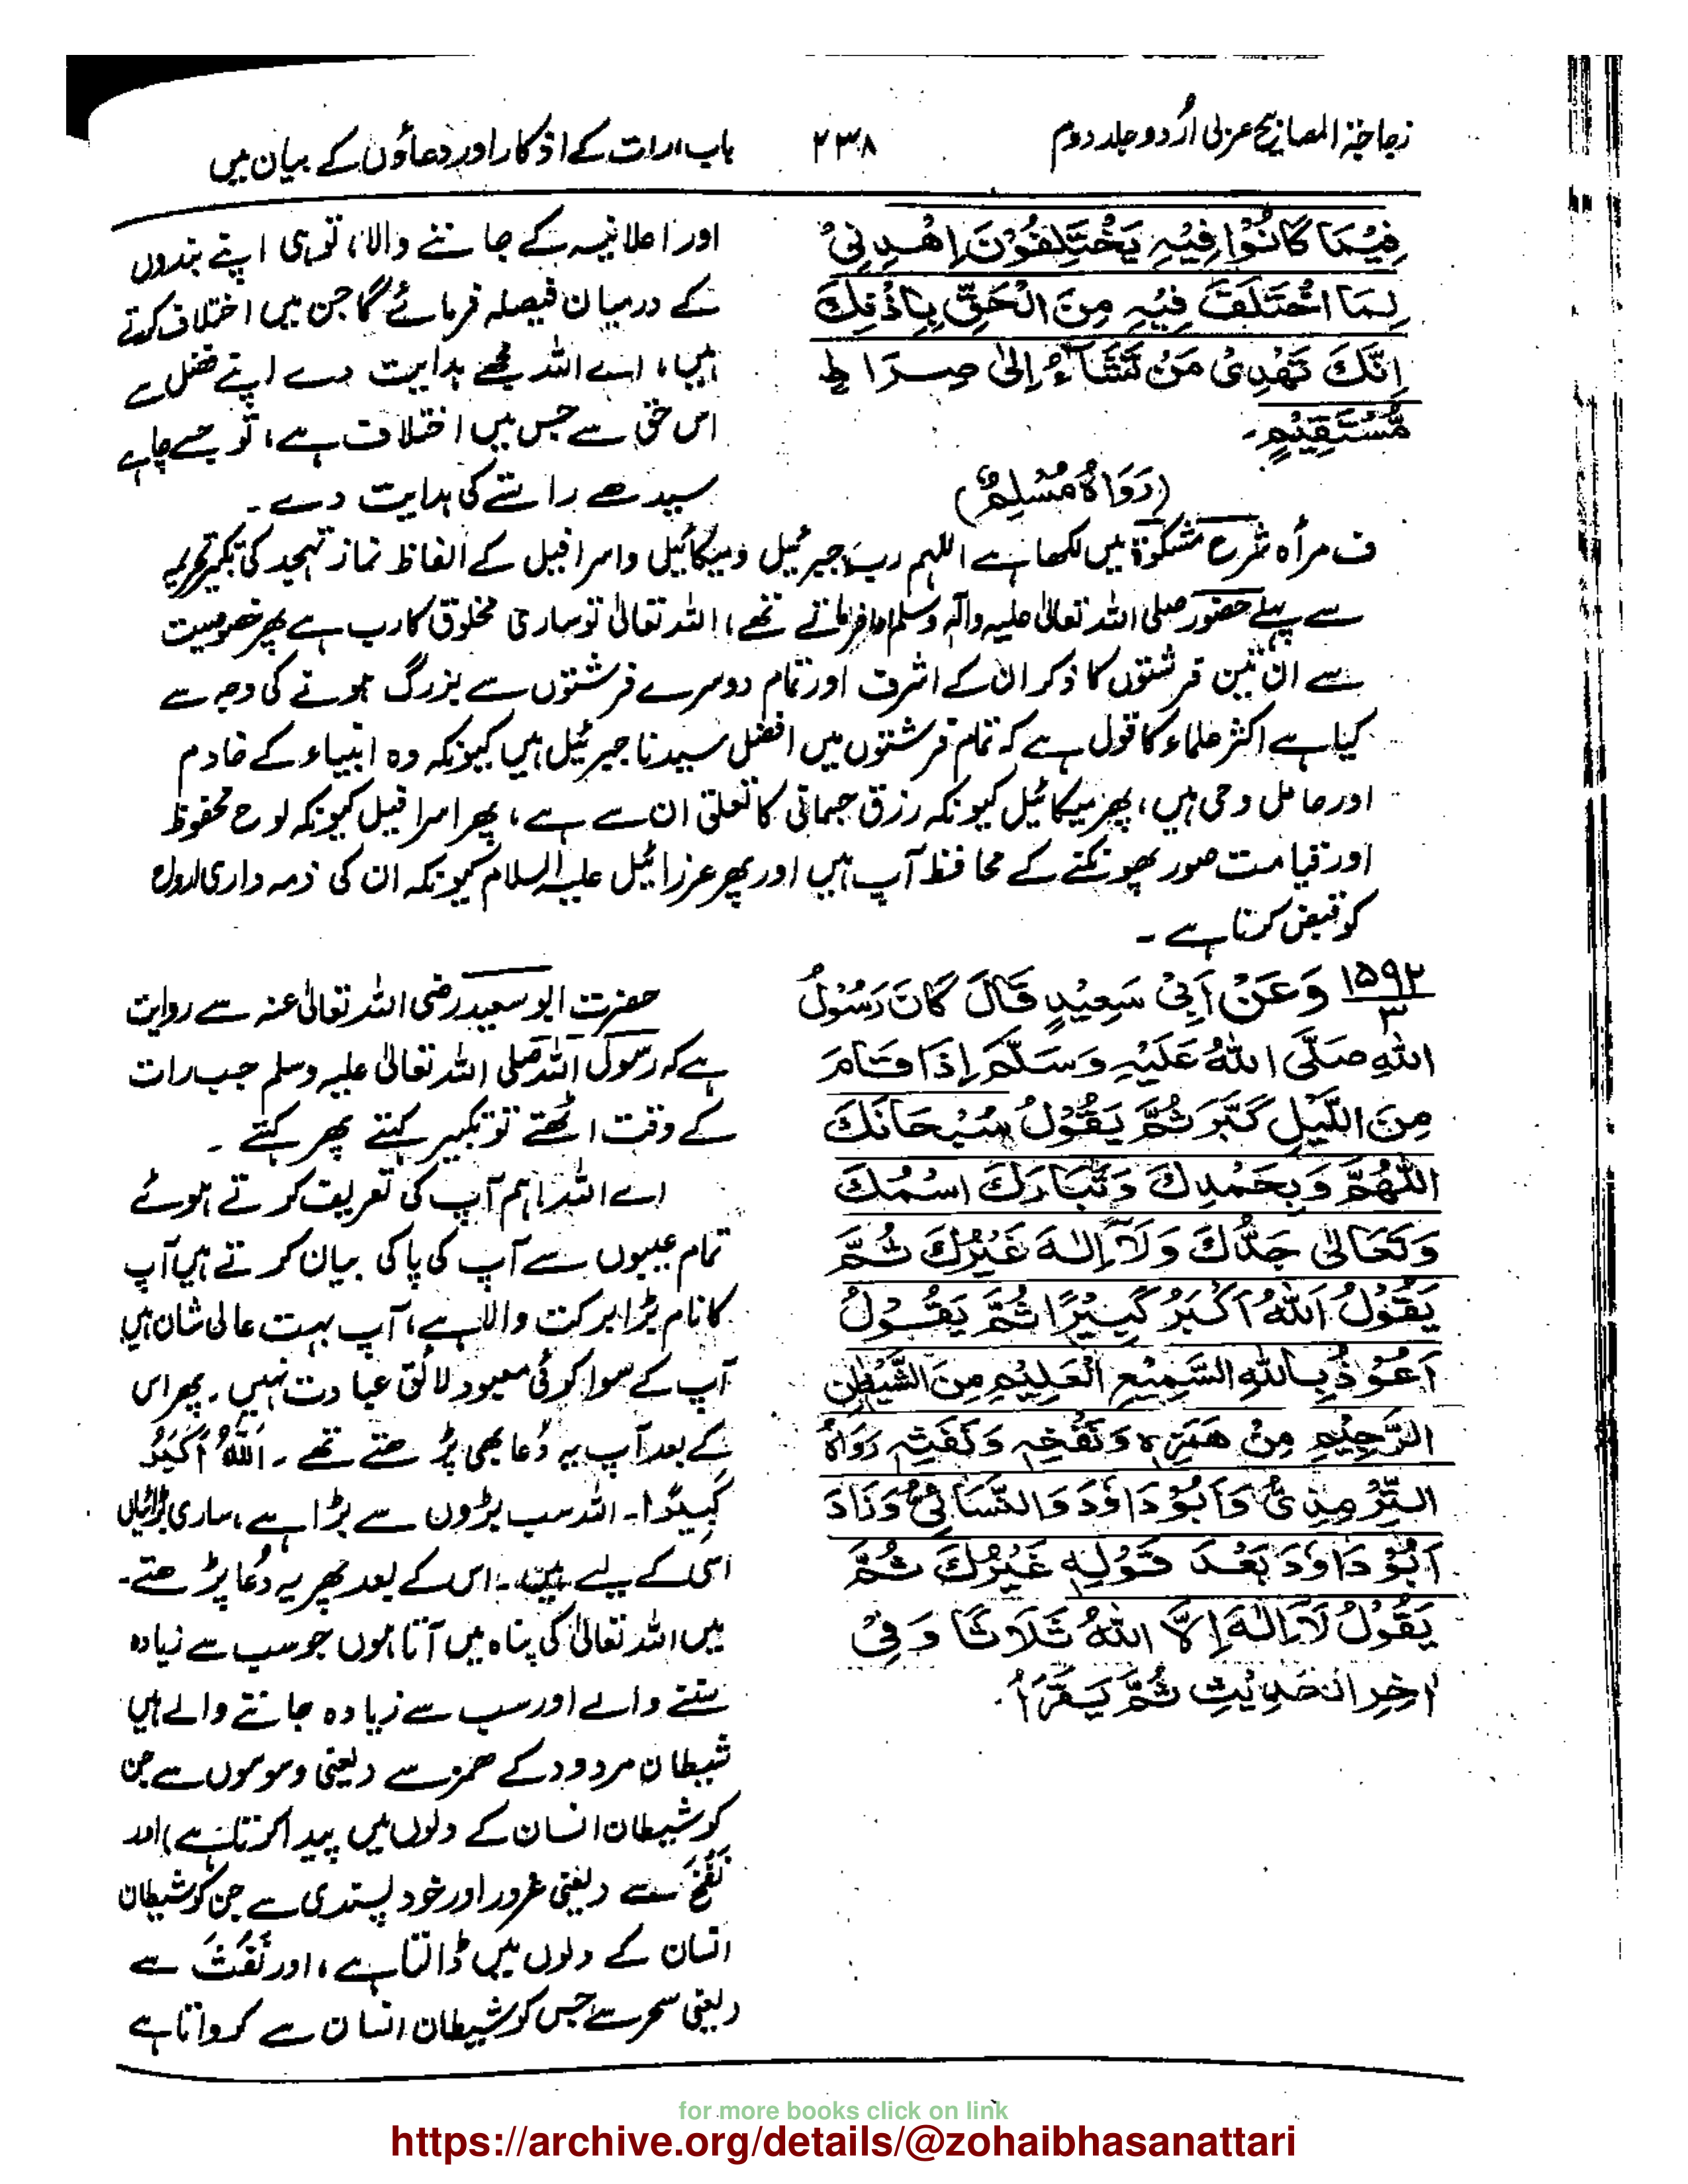 زجاجۃ المصابیح عربی اردو جلد دوم
۲۳۸
باب، رات کے اذکار اور دعاؤں کے بیان میں
فِيْمَا كَانُوْا فِيْهِ يَخْتَلِفُوْنَ اِهْدِنِيْ
لِمَا اخْتَلَفَ فِيْهِ مِنَ الْحَقِّ بِاِذْنِكَ
اِنَّكَ تَهْدِيْ مَنْ تَشَآءُ اِلٰى صِرَاطٍ
مُّسْتَقِيْمٍ۔
(رَوَاهُ مُسْلِمٌ)
اور اعلانیہ کے جاننے والا، تو ہی اپنے بندوں
کے درمیان فیصلہ فرمائے گا جن میں اختلاف کرتے
ہیں، اے اللہ مجھے ہدایت دے اپنے فضل سے
اس حق سے جس میں اختلاف ہے، تو جسے چاہے
سیدھے راستے کی ہدایت دے۔
ف مرأہ شرح مشکوٰۃ میں لکھا ہے اللہم رب جبرئیل ومیکائیل واسرافیل کے الفاظ نماز تہجد کی تکبیر تحریمہ
سے پہلے حضور صلی اللہ تعالیٰ علیہ واٰلہ وسلم ادا فرماتے تھے، اللہ تعالیٰ تو ساری مخلوق کا رب ہے پھر خصوصیت
سے ان تین فرشتوں کا ذکر ان کے اشرف اور تمام دوسرے فرشتوں سے بزرگ ہونے کی وجہ سے
کیا ہے اکثر علماء کا قول ہے کہ تمام فرشتوں میں افضل سیدنا جبرئیل ہیں کیونکہ وہ انبیاء کے خادم
اور حامل وحی ہیں، پھر میکائیل کیونکہ رزق جسمانی کا تعلق ان سے ہے، پھر اسرافیل کیونکہ لوح محفوظ
اور قیامت صور پھونکنے کے محافظ آپ ہیں اور پھر عزرائیل علیہ السلام کیونکہ ان کی ذمہ داری ارواح
کو قبض کرنا ہے۔
۱۵۹۲
۳
وَعَنْ اَبِيْ سَعِيْدٍ قَالَ كَانَ رَسُوْلُ
اللهِ صَلَّى اللهُ عَلَيْهِ وَسَلَّمَ اِذَا قَامَ
مِنَ اللَّيْلِ كَبَّرَ ثُمَّ يَقُوْلُ سُبْحَانَكَ
اللّٰهُمَّ وَبِحَمْدِكَ وَتَبَارَكَ اسْمُكَ
وَتَعَالٰى جَدُّكَ وَلَآ اِلٰهَ غَيْرُكَ ثُمَّ
يَقُوْلُ اَللهُ اَكْبَرُ كَبِيْرًا ثُمَّ يَقُوْلُ
اَعُوْذُ بِاللهِ السَّمِيْعِ الْعَلِيْمِ مِنَ الشَّيْطٰنِ
الرَّجِيْمِ مِنْ هَمْزِهٖ وَنَفْخِهٖ وَنَفْثِهٖ رَوَاهُ
التِّرْمِذِيُّ وَاَبُوْ دَاوٗدَ وَالنَّسَائِيُّ وَزَادَ
اَبُوْ دَاوٗدَ بَعْدَ قَوْلِهٖ غَيْرُكَ ثُمَّ
يَقُوْلُ لَآ اِلٰهَ اِلَّا اللهُ ثَلَاثًا وَفِيْ
اٰخِرِ الْحَدِيْثِ ثُمَّ يَقْرَأُ۔
حضرت ابو سعید رضی اللہ تعالیٰ عنہ سے روایت
ہے کہ رسول اللہ صلی اللہ تعالیٰ علیہ وسلم جب رات
کے وقت اٹھتے تو تکبیر کہتے پھر کہتے۔
اے اللہ! ہم آپ کی تعریف کرتے ہوئے
تمام عیبوں سے آپ کی پاکی بیان کرتے ہیں آپ
کا نام بڑا برکت والا ہے، آپ بہت عالی شان ہیں
آپ کے سوا کوئی معبود لائق عبادت نہیں۔ پھر اس
کے بعد آپ یہ دُعا بھی پڑھتے تھے۔ اَللّٰهُ اَكْبَرُ
كَبِيْرًا۔ اللہ سب بڑوں سے بڑا ہے، ساری بڑائیاں
اسی کے لیے ہیں۔ اس کے بعد پھر یہ دُعا پڑھتے۔
میں اللہ تعالیٰ کی پناہ میں آتا ہوں جو سب سے زیادہ
سننے والے اور سب سے زیادہ جاننے والے ہیں
شیطان مردود کے ھمز سے (یعنی وسوسوں سے جن
کو شیطان انسان کے دلوں میں پیدا کرتا ہے) اور
نَفْخ سے (یعنی غرور اور خود پسندی سے جن کو شیطان
انسان کے دلوں میں ڈالتا ہے، اور نَفَثَ سے
(یعنی سحر سے جس کو شیطان انسان سے کرواتا ہے
for more books click on link
https://archive.org/details/@zohaibhasanattari